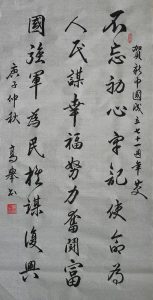 賀新中國成立七十一週年
不忘初心牢記使命為
人民謀幸福努力奮鬥富
國強軍為民族謀復興
庚子仲秋